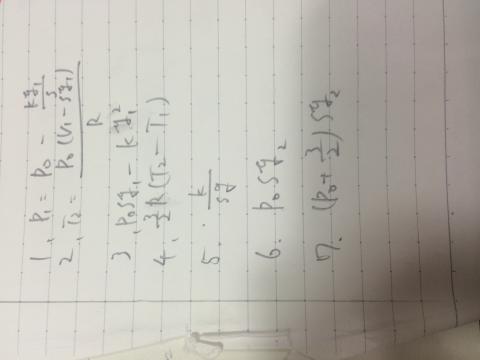 1, P₁ = P₀ - ky₁/S
2, T₂ = P₀(V₁ - Sy₁)/R
3, P₀Sy₁ - ky₁²
4, 3/2 R(T₂ - T₁)
5. k/Sy
6. P₀Sy₂
7. (P₀ + 3/2) Sy₂